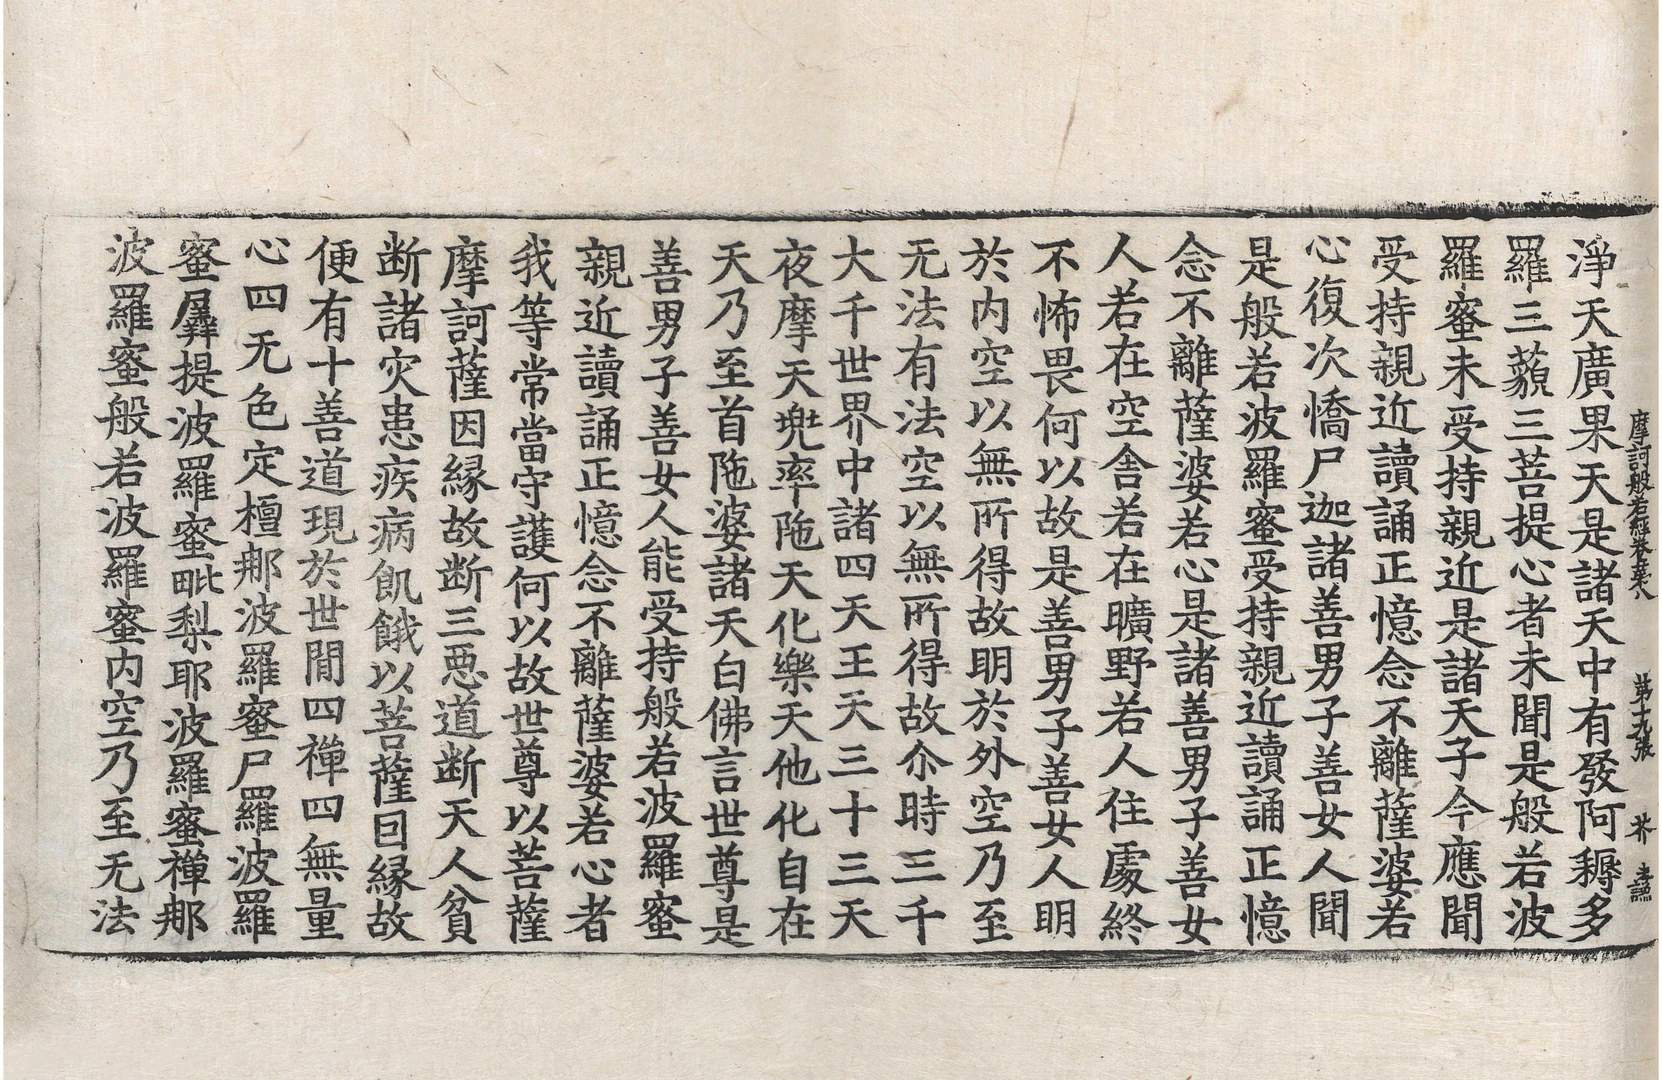 摩訶般若經卷第八　第十九張　芥
淨天廣果天是諸天中有發阿耨多
羅三藐三菩提心者未聞是般若波
羅蜜未受持親近是諸天子今應聞
受持親近讀誦正憶念不離薩婆若
心復次憍尸迦諸善男子善女人聞
是般若波羅蜜受持親近讀誦正憶
念不離薩婆若心是諸善男子善女
人若在空舍若在曠野若人住處終
不怖畏何以故是善男子善女人明
於内空以無所得故明於外空乃至
无法有法空以無所得故尒時三千
大千世界中諸四天王天三十三天
夜摩天兜率陁天化樂天他化自在
天乃至首陁婆諸天白佛言世尊是
善男子善女人能受持般若波羅蜜
親近讀誦正憶念不離薩婆若心者
我等常當守護何以故世尊以菩薩
摩訶薩因縁故断三惡道断天人貧
断諸灾患疾病飢餓以菩薩因縁故
便有十善道現於世間四禪四無量
心四无色定檀那波羅蜜尸羅波羅
蜜羼提波羅蜜毗梨耶波羅蜜禪那
波羅蜜般若波羅蜜内空乃至无法